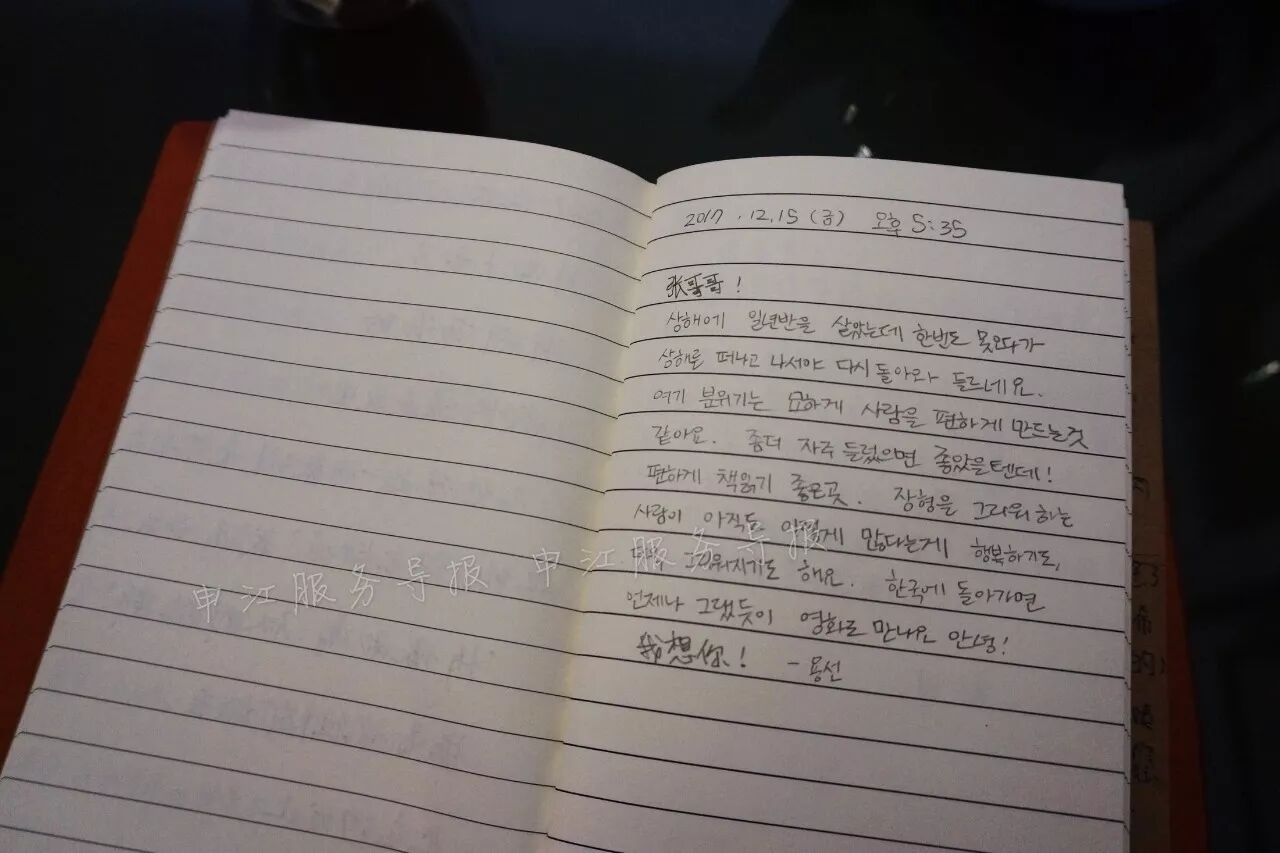 2017.12.15 (금) 오후 5:35
张哥哥!
상해에 일년반을 살았는데 한번도 못오다가
상해를 떠나고 나서야 다시 돌아와 들르네요.
여기 분위기는 묘하게 사람을 편하게 만드는것
같아요. 좀더 자주 들렀으면 좋았을텐데!
편하게 책읽기 좋은곳. 장형을 그리워하는
사람이 아직도 이렇게 많다는게 행복하기도,
더욱 그리워지기도 해요. 한국에 돌아가면
언제나 그랬듯이 영화로 만나요 안녕!
我想你! - 용선
申江服务导报 申江服务导报